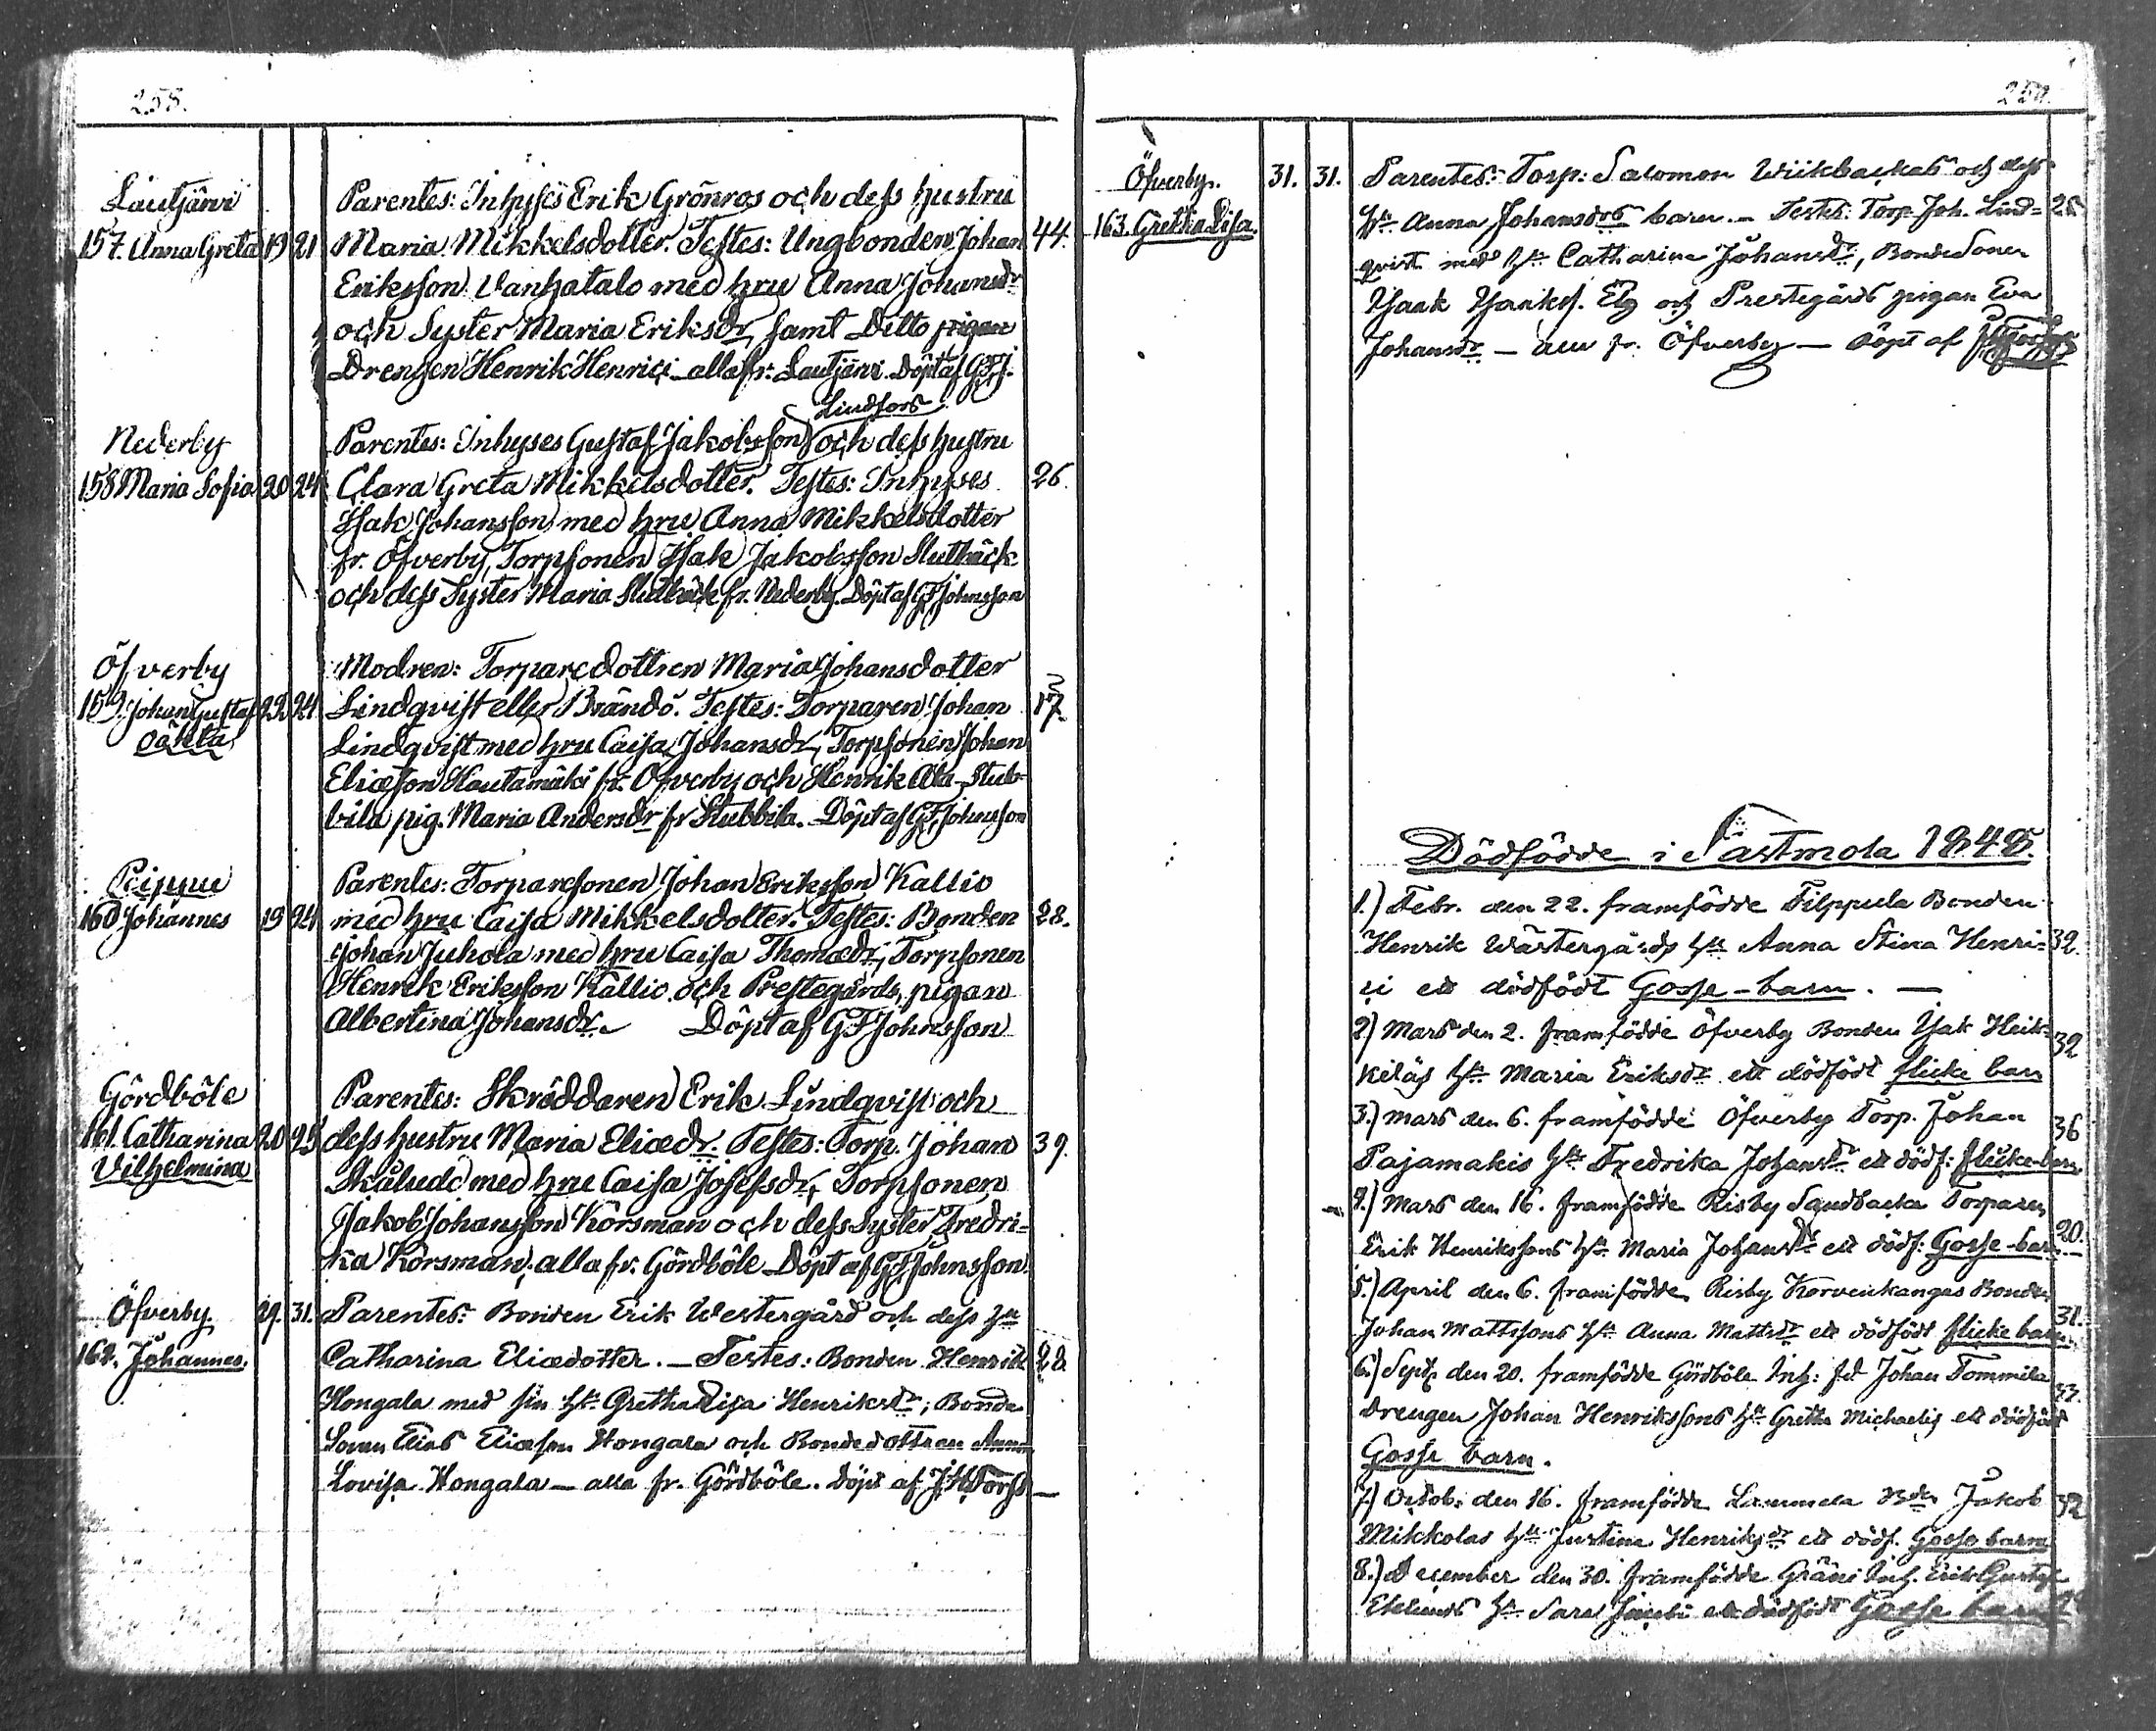 258.
Lautjärvi
157. Anna Greta 19 21
Parentes: Inhyses Erik Grönros och dess hustru
Maria Mikkelsdotter. Testes: Ungbonden Johan 44.
Eriksson Vanhatalo med hru Anna Johansdr
och Syster Maria Eriksdr, samt Ditto pigan
Drengen Henrik Henrici alla fr. Lautjärvi. Döpt af GFJ.
Nederby
158 Maria Sofia 20 24
Lindfors
Parentes: Inhyses Gustaf Jakobsson och dess hustru
Clara Greta Mikkelsdotter. Testes: Inhyses 26.
Isak Johansson med hru Anna Mikkelsdotter
fr. Öfverby, Torpsonen Isak Jakobsson Slutbäck
och dess Syster Maria Slutbäck fr. Nederby. Döpt af GFJohnsson
Öfverby
159. Johan Gustaf 22 24
oäkta
Modren: Torparedottren Maria Johansdotter
Lindqvist eller Brändö. Testes: Torparen Johan 17.
Lindqvist med hru Caisa Johansdr, Torpsonen Johan
Eliæson Hautamäki fr. Öfverby och Henrik Ala-Stub-
bila pig. Maria Andersdr fr Stubbila. Döpt af GFJohnsson
160 Johannes 19 24
Parentes: Torparesonen Johan Eriksson Kallio
med hru Caisa Mikkelsdotter. Testes: Bonden 28.
Johan Juhola med hru Caisa Thomædr, Torpsonen
Henrik Eriksson Kallio och Prestegårds pigan
Albertina Johansdr. Döpt af GFJohnsson
Gördböle
161. Catharina 20 25
Vilhelmina
Parentes: Skräddaren Erik Lindqvist och
dess hustru Maria Eliædr. Testes: Torp. Johan 39.
med hru Caisa Josefsdr, Torpsonen
Jakob Johansson Korsman och dess Syster Fredri-
ka Korsman, alla fr. Gördböle Döpt af GFJohnsson.
Öfverby. 29. 31.
162. Johannes.
Parentes: Bonden Erik Westergård och dess hu
Catharina Eliædotter. — Testes: Bonden Henrik 28.
Hongala med sin hu Gretha Lisa Henriksdr; Bonde
Sonen Elias Eliæson Hongala och Bondedottren Anna
Lovisa Hongala — alla fr. Gördböle. Döpt af
Öfverby. 31. 31.
163. Gretha Lisa.
Parentes: Torp: Salomon Wiikbackas och dess
hu Anna Johansdrs barn. — Testes: Torp. Joh. Lind-
qvist med hu Catharina Johansdr, Bonde Sonen
Isaak Isaakss. Elg och Prestegårds pigan Eva
Johansdr — alla fr. Öfverby — Döpt af
Dödfödde i Sastmola 1848.
1.) Febr. den 22. framfödde Filppula Bonden
Henrik Wästergårds hu Anna Stina Henri- 32.
ci ett dödfödt Gosse-barn. —
2) Mars den 2. framfödde Öfverby Bonden Isak Heik- 32
kiläs hu Maria Eriksdr ett dödfödt flicke barn
3.) Mars den 6. framfödde Öfverby Torp. Johan 36
Pajamakis hu Fredrika Johansdr ett dödf: flicke-barn
4.) Mars den 16. framfödde Risby Sandbacka Torparen
Erik Henrikssons hu Maria Johansdr ett dödf: Gosse-barn 20.
5.) April den 6. framfödde Risby Korvenkangas Bonden
Johan Mattssons hu Anna Mattsdr ett dödfödt flicke barn 31.
6.) Sept. den 20. framfödde Gördböle Inh: Johan Tommila
Drengen Johan Henrikssons hu Gretha Michaelis ett dödfödt 33.
Gosse barn.
7.) Octob. den 16. framfödde Lammela Jakob 32
Mikkolas hu Justina Henriksdr ett dödf. Gosse barn
8.) December den 30. framfödde Inh. Erik Gustaf
Eklunds hu Sara ett dödfödt Gosse barn